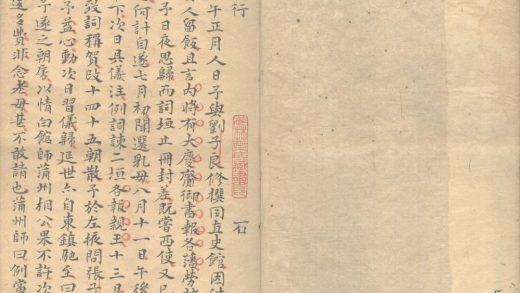 行 石
午正月人日予與劉子良修撰同直史館因
人留飯且言內將有大慶齋御書報各藩勞
予日夜思歸而詞垣止冊封差既嘗西使又
何計自遂七月初聞選乳母八月十一日午後
下次日具儀注例詞諫二垣各報親王十三日
致詞稱賀改十四十五朝散予於左掖問張子
予益心動次日習儀歸延世亦自東鎮馳至曰
予遂之朝房以情白館師蒲州相公果不許次
遠多費非念老母甚不敢請也蒲州師曰例當